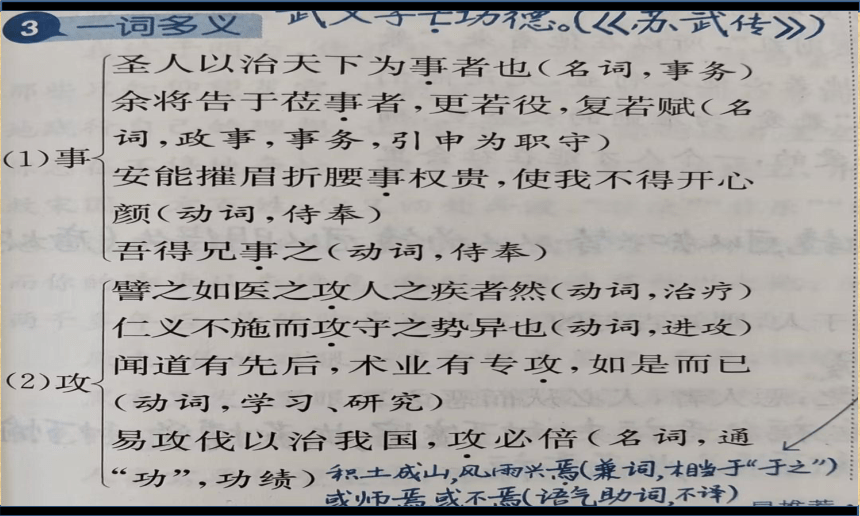 3 一词多义 武父子亡功德。(《苏武传》)
圣人以治天下为事者也(名词,事务)
余将告于莅事者,更若役,复若赋(名
词,政事,事务,引申为职守)
(1)事
安能摧眉折腰事权贵,使我不得开心
颜(动词,侍奉)
吾得兄事之(动词,侍奉)
譬之如医之攻人之疾者然(动词,治疗)
仁义不施而攻守之势异也(动词,进攻)
闻道有先后,术业有专攻,如是而已
(2)攻
(动词,学习、研究)
易攻伐以治我国,攻必倍(名词,通
“功”,功绩) 积土成山,风雨兴焉(兼词,相当于“于之”)
或师焉或不焉(语气助词,不译)